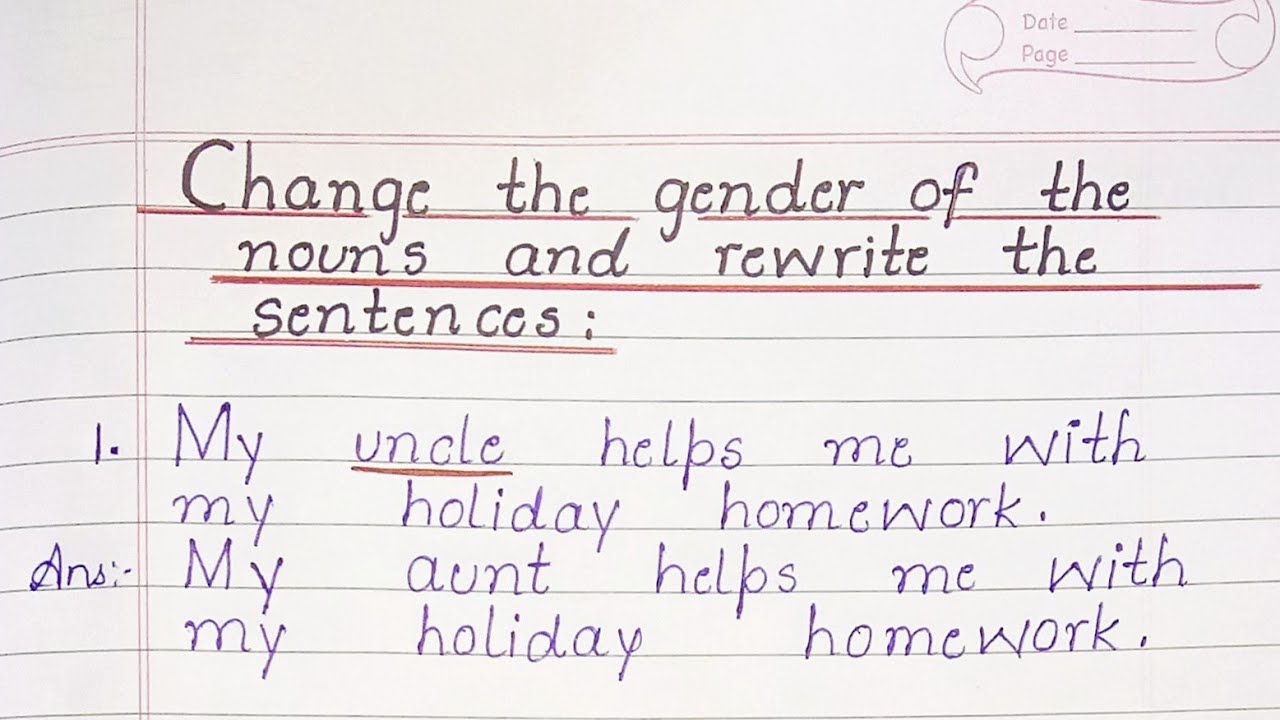 Date
Page
Change the gender of the
nouns and rewrite the
sentences:
1. My uncle helps me with
my holiday homework.
Ans:- My aunt helps me with
my holiday homework.